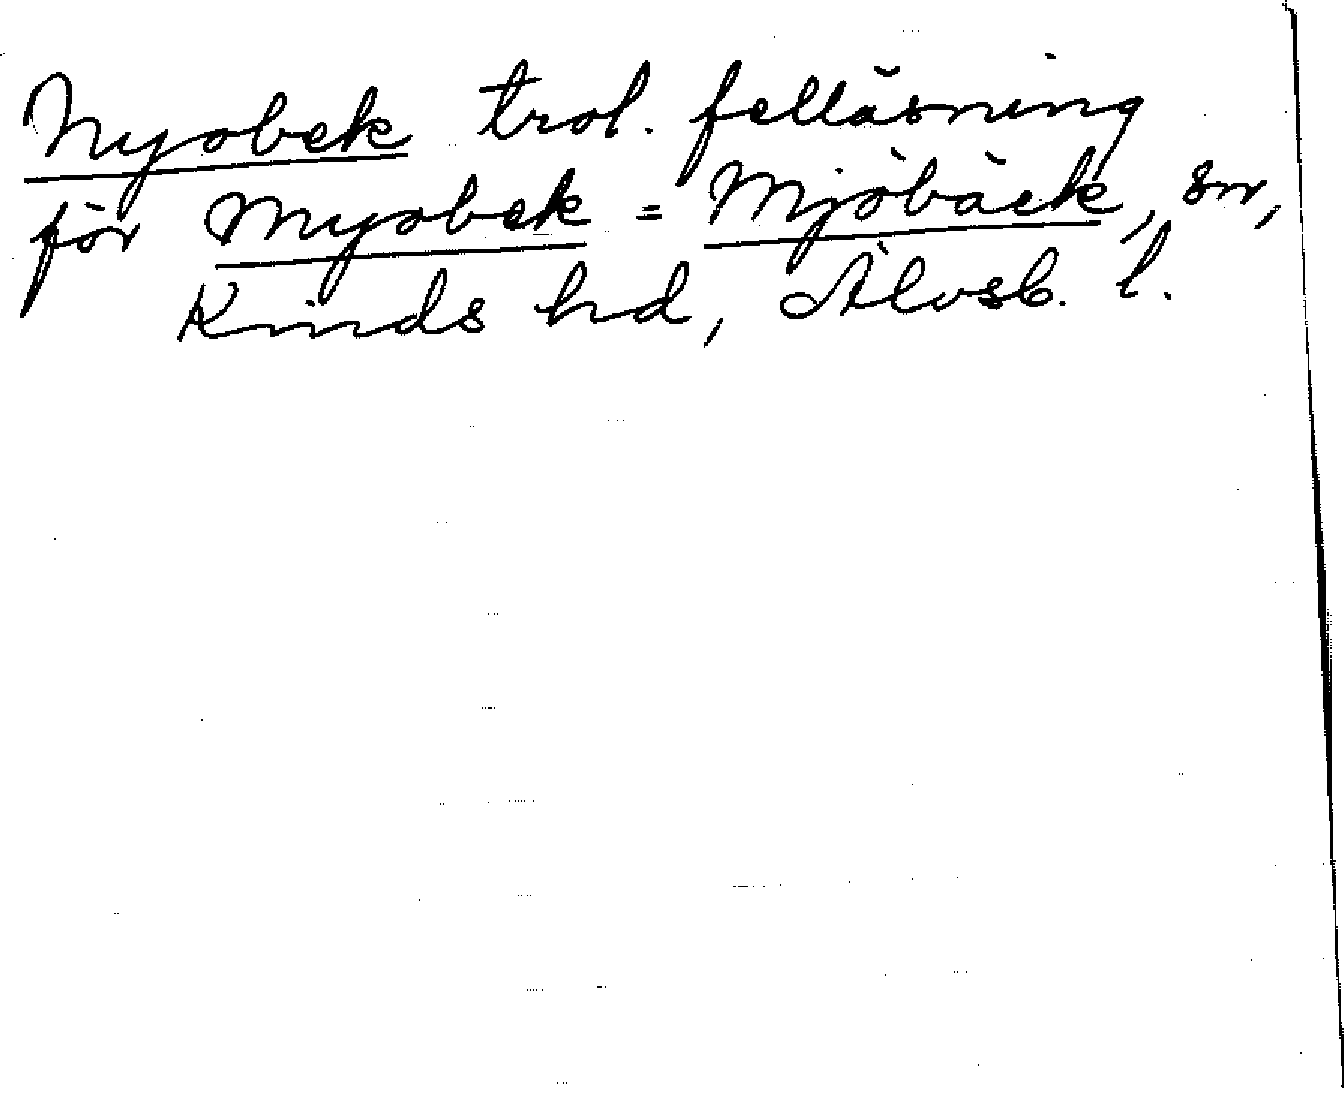 Nyobek trol. felläsning
för Myobek = Mjöbäck, sn,
Kinds hd, Älvsb. l.